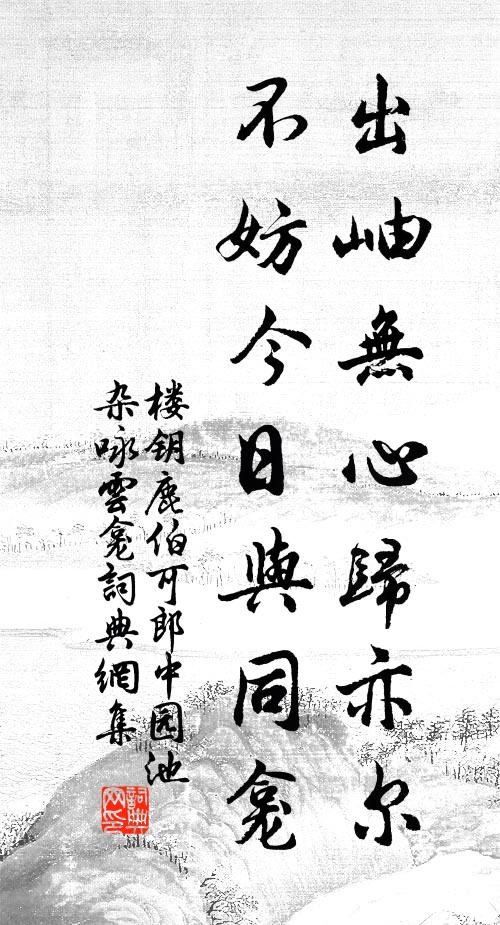 出岫無心歸亦尔
不妨今日與同龛
楼钥鹿伯可郎中园池
杂咏雲龛詞典網集